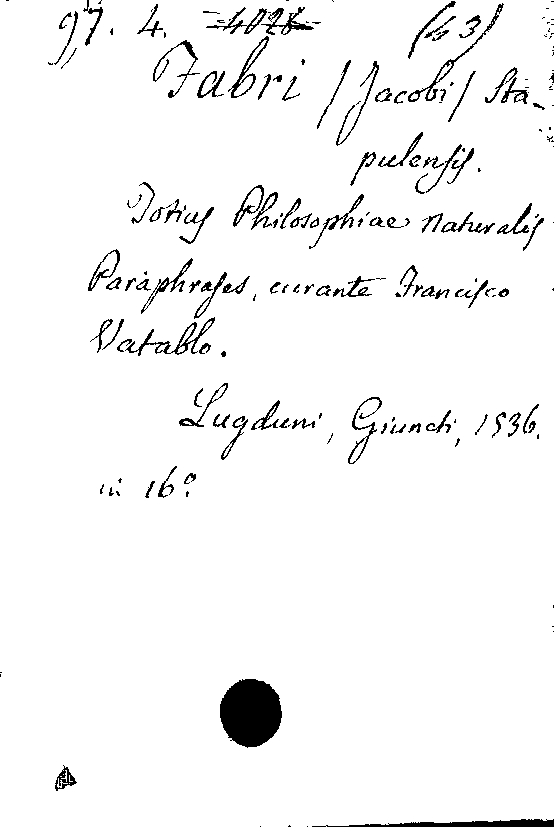 97. 4. 4028 (43)
Fabri /Jacobi/ Sta-
pulensis.
Totius Philosophiae naturalis
Paraphrases, curante Francisco
Vatablo.
Lugduni, Giuncti, 1536.
in 16º